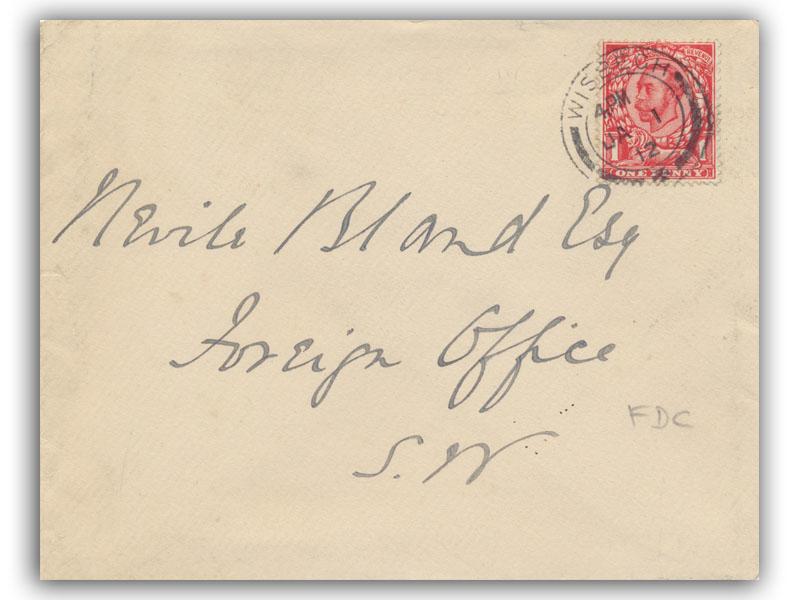 WISBECH
4 PM
JA 1
12
REVENUE
1 1
ONE PENNY
Nevile Bland Esq
Foreign Office
S. W
FDC